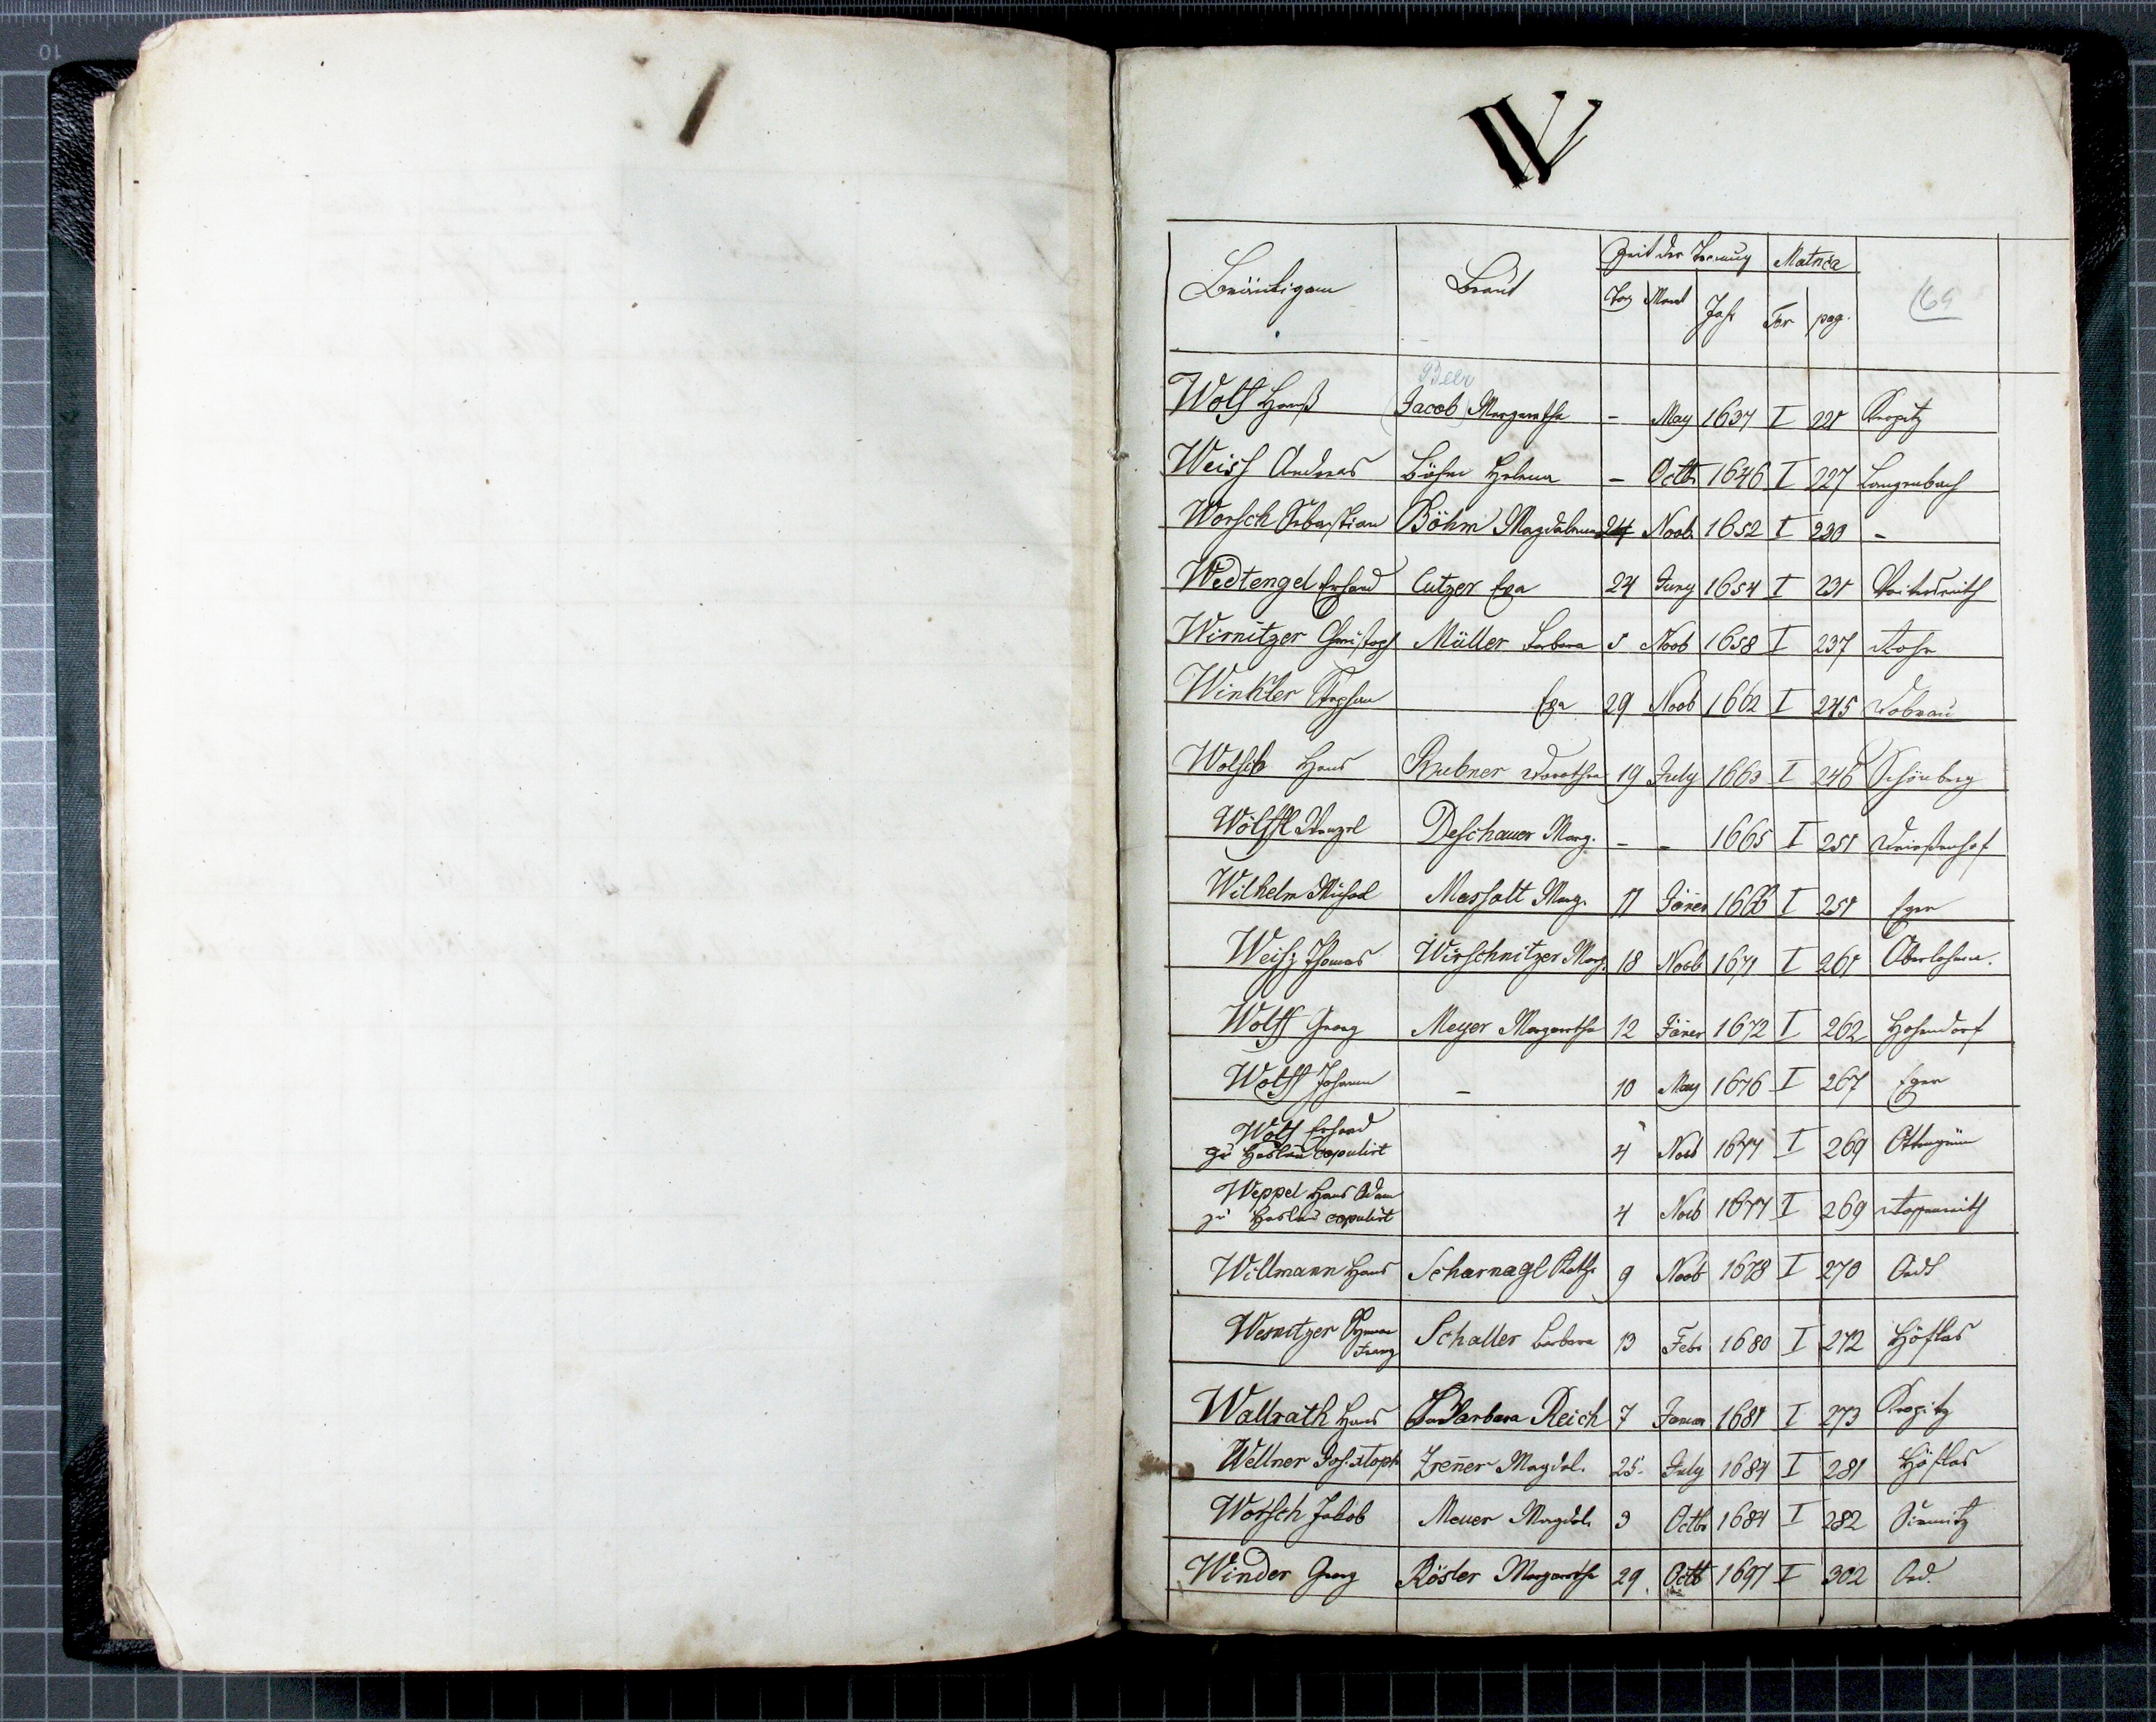 W
Bräutigam Braut Zeit der Trauung Matrica 165
Tag Monat Jahr Tom pag.
Beer
Wolf Hanß Jacob Margaretha - May 1637 I 221 Kropitz
Weiss Andreas Böhm Helena - Octb 1646 I 227 Langenbach
Worsch Sebastian Böhm Magdalena 24 Novb 1652 I 230 -
Wedtengel Erhard Lutzer Eva 24 Juny 1654 I 231 Voitersreith
Wirnitzer Christoph Müller Barbara 5 Novb 1658 I 237 Rohr
Winkler Stephan Eva 29 Novb 1662 I 245 Dobrau
Wolf Hans Rubner Dorothea 19 July 1663 I 246 Schönberg
Wölffl Wenzel Deschauer Marg. - - 1665 I 251
Wilhelm Michael Marg. 11 Jäner 1666 I 251 Eger
Weisz Thomas Wirschnitzer Marg. 18 Novb 1671 I 261 Oberlohma.
Wolff Georg Meyer Margaretha 12 Jäner 1672 I 262 Hohendorf
Wolff Johann - 10 May 1676 I 267 Eger
Wolf Erhard
zu Haslau copulirt 4 Novb 1677 I 269 Ottengrün
Weppel Hans Adam
zu Haslau copulirt 4 Novb 1677 I 269
Willmann Hans Scharnagl Kath. 9 Novb 1678 I 270
Wesnitzer Schaller Barbara 13 Feb 1680 I 272 Höflas
Franz
Wallrath Hans Barbara Reich 7 Januar 1681 I 273 Kropitz
Wellner Joh. Xtoph Zrenner Magdal. 25. July 1684 I 281 Höflas
Worsch Jakob Meuer Magdal. 3 Octb 1684 I 282 Sirmitz
Winder Georg Rösler Margaretha 29. Octb 1697 I 302